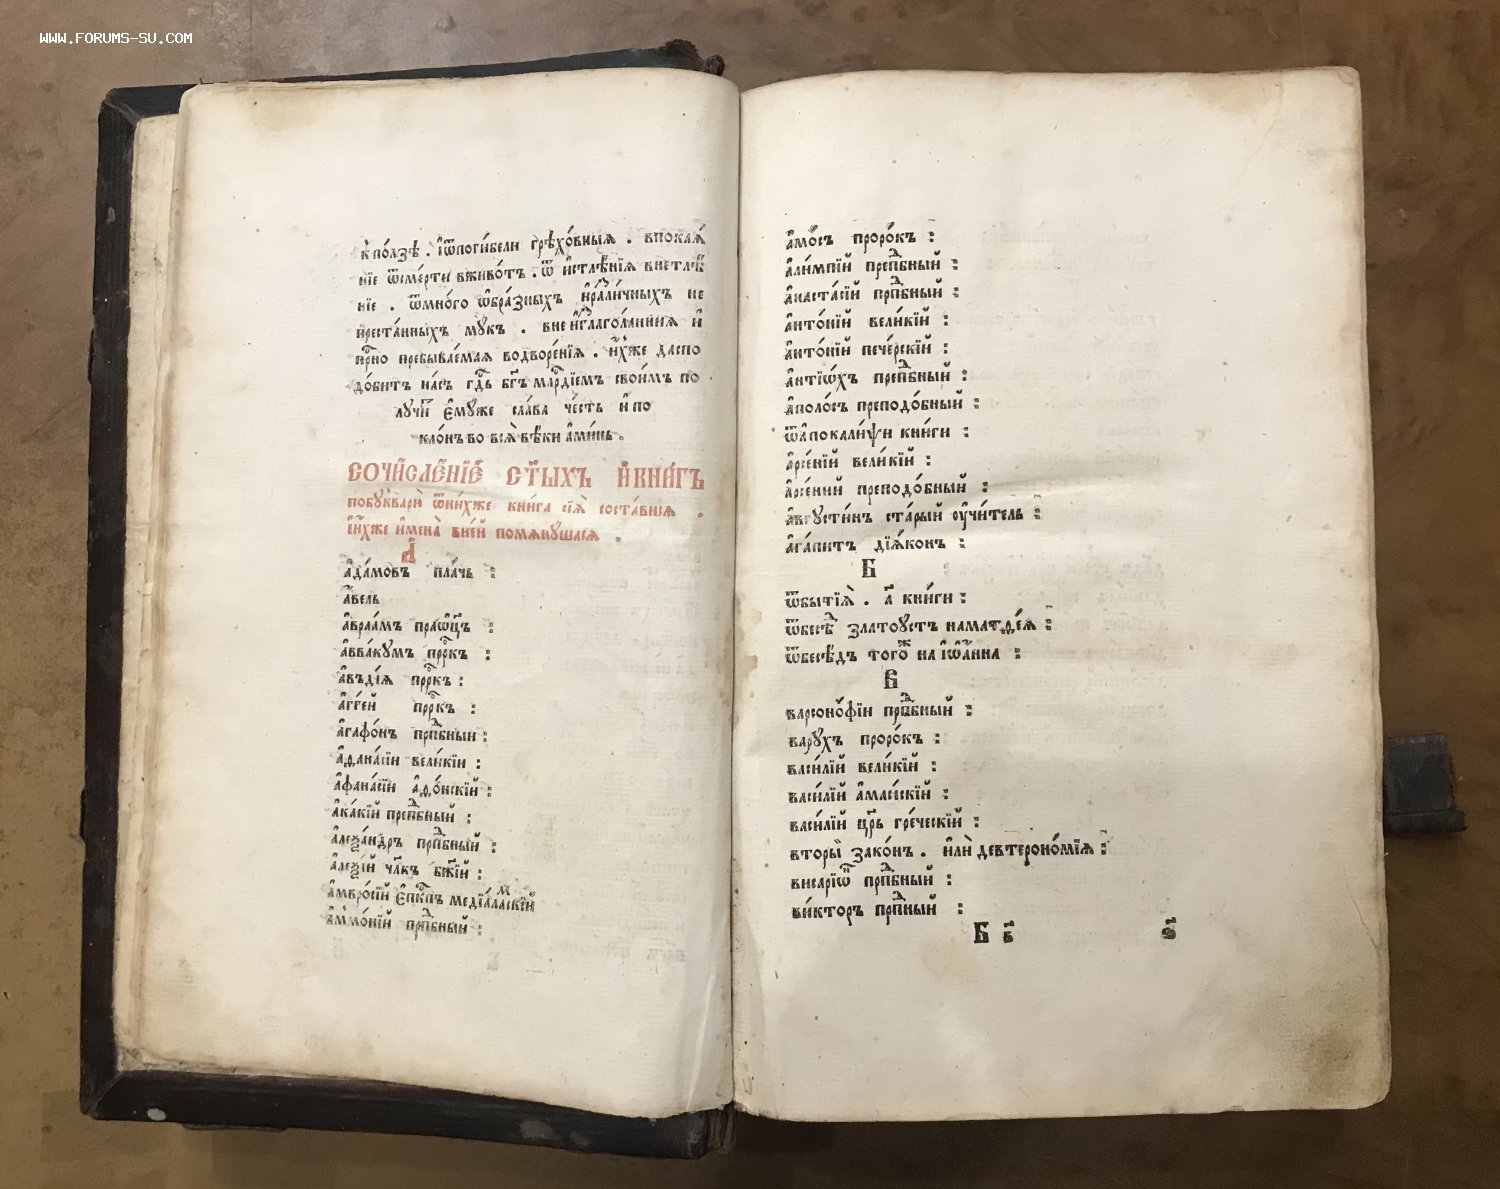 WWW.FORUMS-SU.COM
к̾по́лзѣ . і҆ѿпоги́бели грѣхо́вныѧ . в̾покаѧ́
ніе ѿсме́рти вживо́тъ . ѿ и҆стлѣ́нїѧ внетлѣ́
нїе . ѿмно́го ѡ҆бра́зныхъ и҆разли́чныхъ не
преста́нныхъ мукъ . вне и҆зглаго́ланнꙋ и҆
прⷭ҇но пребыва́емаѧ водворе́нїѧ . и҆́хже даспо
до́битъ на́съ гдⷭ҇ь бг҃ъ мл҇рдїемъ свои́мъ по
лꙋчи́ти є҆мꙋже сла́ва че́сть и҆ по
кло́нъ во всѧ̀ вѣ́ки а҆ми́нь .
СОЧИСЛЕ́НІЕ СТ҃Ы́ХЪ И҆КНИ́ГЪ
побꙋ́кварѝ ѿни́хже кни́га сїѧ̀ соста́висѧ .
и҆и҆́хже и҆мена̀ вне́й помѧнꙋшасѧ .
А҆
а҆да́мовъ пла́чь :
а҆́вель
а҆враа́мъ пра́ѻц҃ъ :
а҆ввакꙋ́мъ прⷪ҇ркъ :
а҆въді́ѧ прⷪ҇ркъ :
а҆гге́й прⷪ҇ркъ :
а҆гаѳо́нъ прпⷣбный :
а҆ѳана́сїи вели́кїи :
а҆фана́сїй а҆ѳо́нскїй :
а҆ка́кїй препⷣбный :
а҆леѯа́ндръ прпⷣбный :
а҆леѯі́й чл҃къ бж҃їй :
а҆мвро́сїй є҆пⷭ҇кпъ медїа́ламскїй
а҆ммо́нїй прпⷣбный :
а҆мо́съ проро́къ :
а҆ли́мпїй препⷣбный :
а҆наста́сїй прпⷣбный :
а҆нто́нїй вели́кїй :
а҆нто́нїй пече́рскїй :
а҆нтїѡ́хъ препⷣбный :
а҆поло́съ преподо́бный :
ѿа҆покали́ѱи кни́ги :
а҆рсе́нїй вели́кїй :
а҆рсе́ний преподо́бный :
а҆вгꙋсти́нъ ста́рый ᲂу҆чи́тель :
а҆га́питъ дїѧ́конъ :
Б
ѿбытїѧ̀ . а҃ кни́ги :
ѿбесѣⷣ златоꙋстъ на матѳе́ѧ :
ѿбесѣ́дъ того́ж на і҆ѡа́нна :
В
варсоно́фїи прпⷣбный :
варꙋхъ проро́къ :
васи́лїй вели́кїй :
васи́лїй а҆маси́скїй :
васи́лїй цр҃ь гре́ческїй :
вторы́ зако́нъ . и҆лѝ девтероно́мїѧ :
висарїѡ́н прпⷣбный :
ви́кторъ прпⷣный :
Б в҃